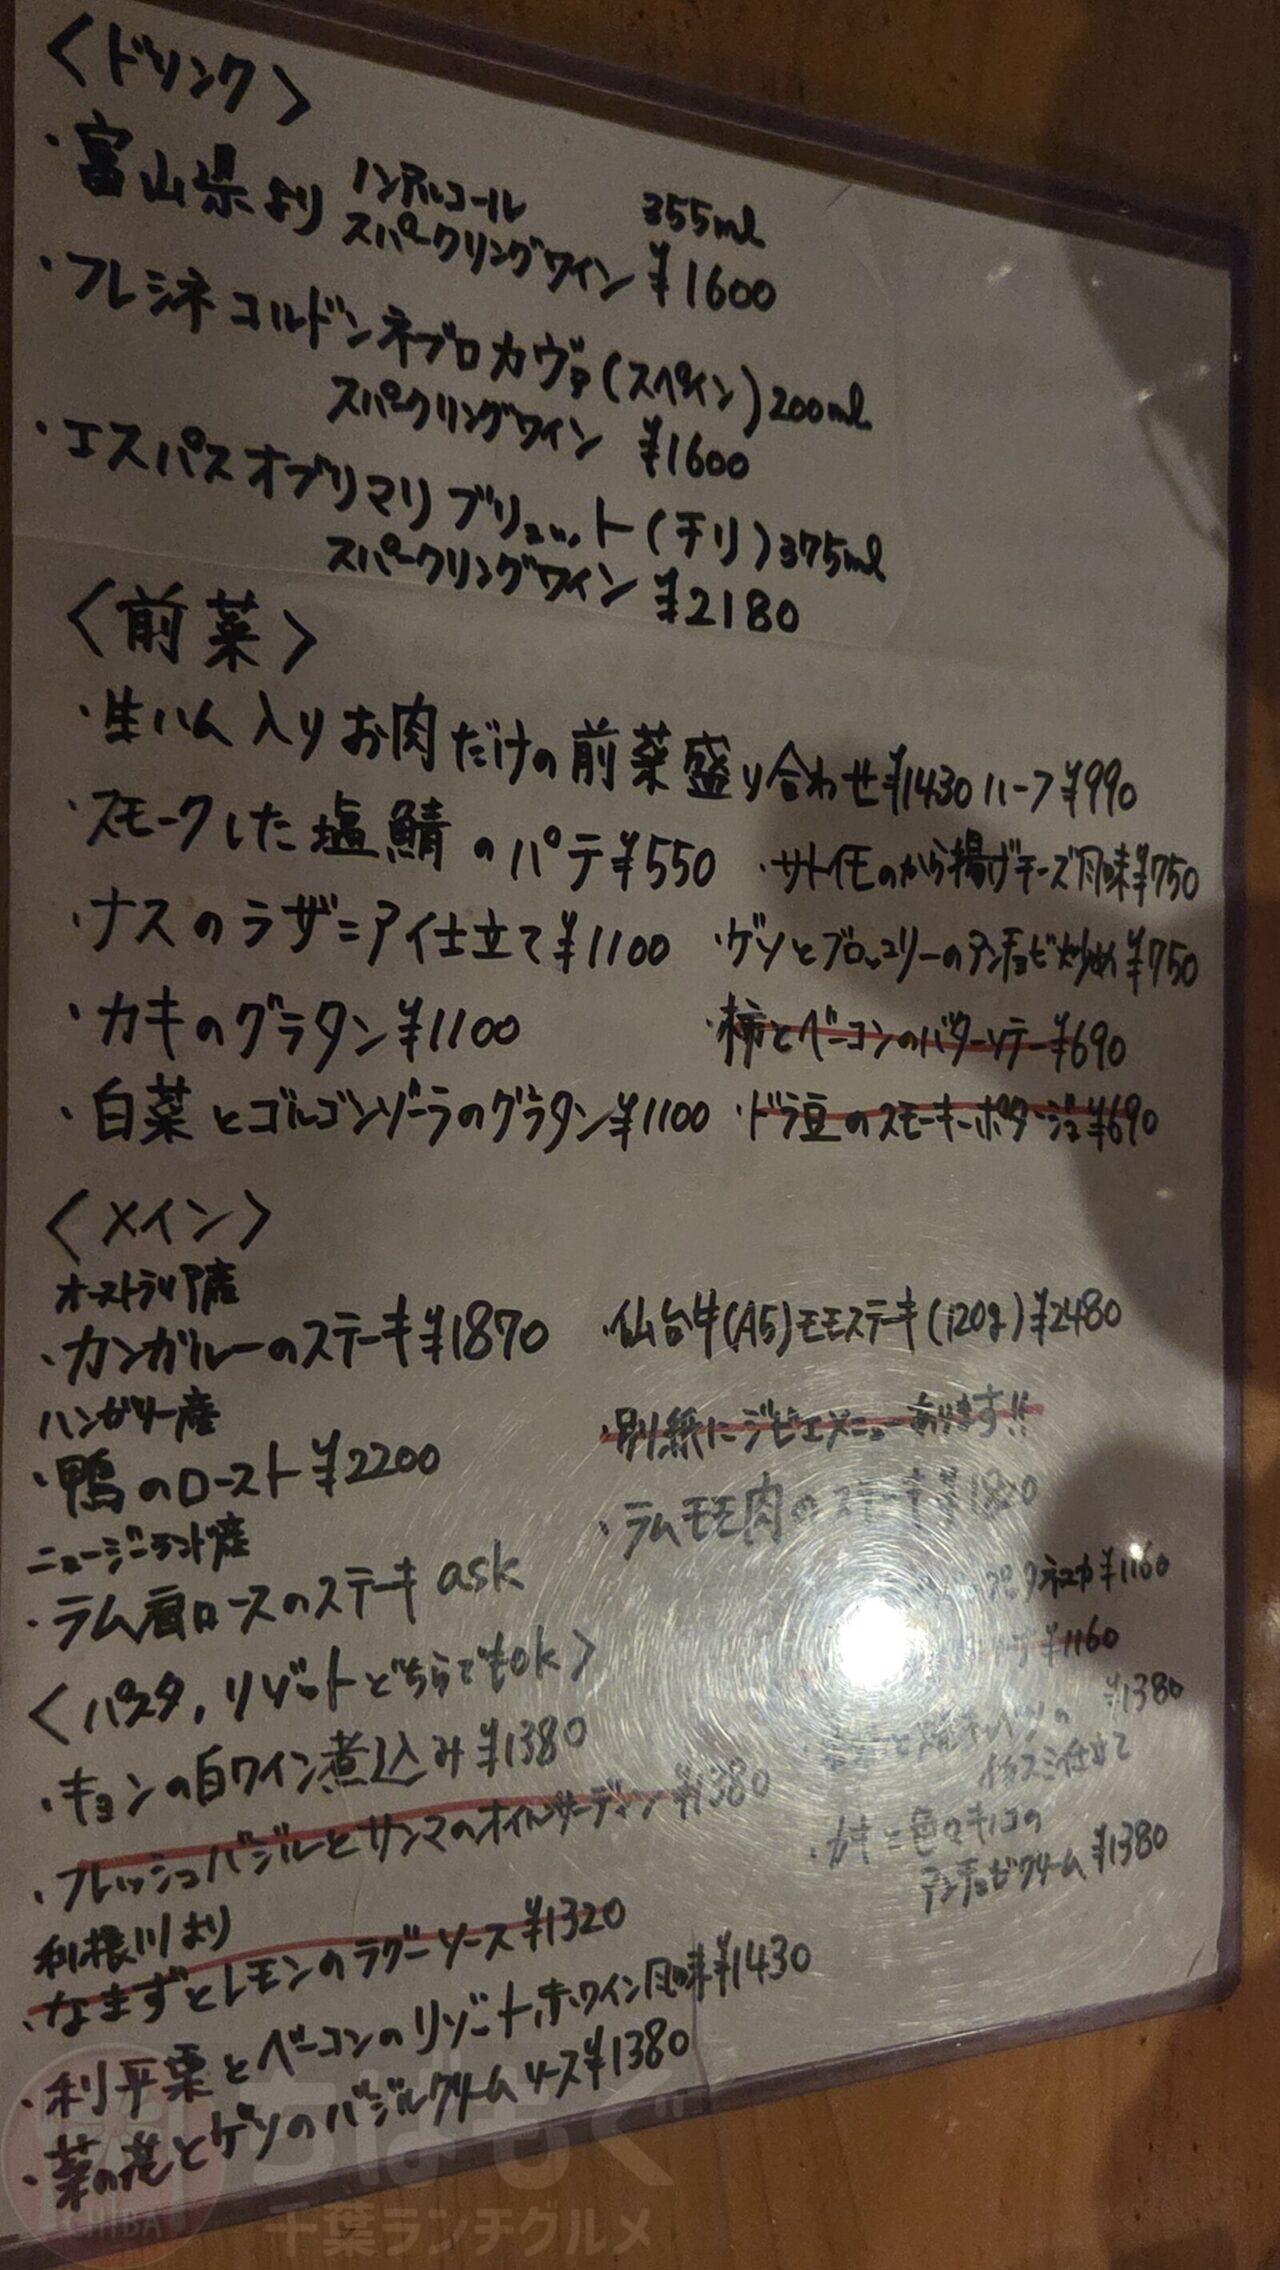 <ドリンク>
・富山県より ノンアルコール 355ml
スパークリングワイン ¥1600
・フレシネ コルドンネグロ カヴァ(スペイン)200ml
スパークリングワイン ¥1600
・エスパスオブリマリ ブリュット(チリ)375ml
スパークリングワイン ¥2180
<前菜>
・生ハム入りお肉だけの前菜盛り合わせ¥1430 ハーフ¥990
・スモークした塩鯖のパテ¥550
・サトイモのから揚げチーズ風味¥750
・ナスのラザニアイ仕立て¥1100
・ゲソとブロッコリーのアンチョビ炒め¥750
・カキのグラタン¥1100
・柿とベーコンのバターソテー¥690
・白菜とゴルゴンゾーラのグラタン¥1100
・ドラ豆のスモーキーポタージュ¥690
<メイン>
オーストラリア産
・カンガルーのステーキ¥1870
・仙台牛(A5)モモステーキ(120g)¥2480
ハンガリー産
・鴨のロースト¥2200
・別紙にジビエメニューあります!!
ニュージーランド産
・ラム肩ロースのステーキ ask
・ラムモモ肉のステーキ
<パスタ,リゾットどちらでもok>
・キョンの白ワイン煮込み¥1380
・フレッシュバジルとサンマのオイルサーディン¥1380
利根川より
・なまずとレモンのラグーソース¥1320
・利平栗とベーコンのリゾット,赤ワイン風味¥1430
・菜の花とゲソのバジルクリームソース¥1380
¥1160
¥1160
¥1380
イカスミ仕立て
・カキと色々キノコの
アンチョビクリーム¥1380
ちばもぐ
千葉ランチグルメ
CHIBA